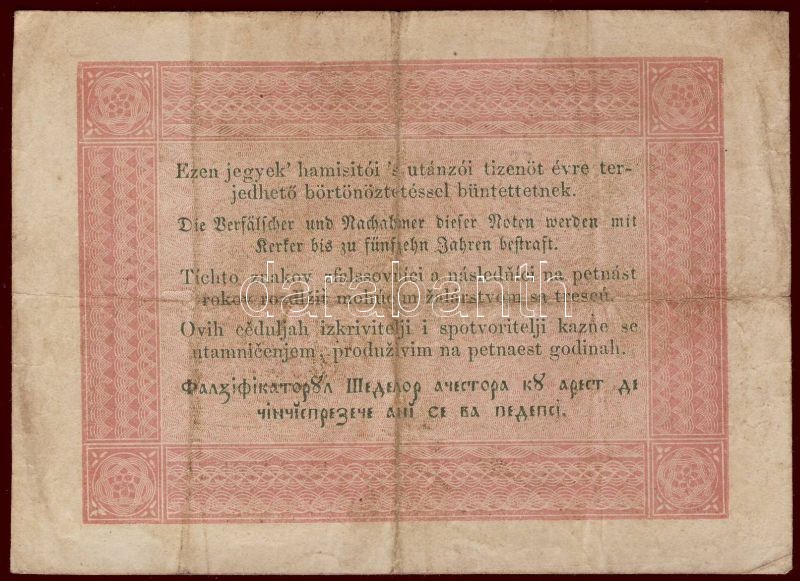 Ezen jegyek' hamisitói 's utánzói tizenöt évre ter-
jedhető börtönöztetéssel büntettetnek.
Die Verfälscher und Nachahmer dieser Noten werden mit
Kerker bis zu fünfzehn Jahren bestraft.
Tíchto znakov zfalssovňíci a následňíci na petnást
rokov rozdlžit mohúcím žalárstvom sa trescú.
darabanth
Ovih cěduljah izkrivitelji i spotvoritelji kazne se
utamničenjem, produživim na petnaest godinah.
Фалꙁіфікаторꙋл Шеделор ачестора кꙋ арест де
чінчіспрезече ані се ва педепсі.